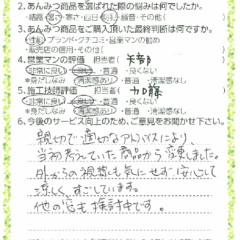 2.あんみつ商品を選ばれた際の悩みは何でしたか。
・結露・暑さ・寒さ・西日・ ・騒音・その他( )
3.あんみつ商品をご購入頂いた最終判断は何ですか。
・ ・ブランド・クチコミ・営業マンの勧め
・販売店の信用・その他( )
4.営業マンの評価 担当者( )
・非常に良い・良い・普通・良くない
※身だしなみ・清潔感あり・普通・清潔感なし
5.施工技術評価 担当者( 加藤 )
・非常に良い・良い・普通・良くない
※身だしなみ・清潔感あり・普通・清潔感なし
6.今後のサービス向上のため、ご意見をお聞かせ下さい。
親切で適切なアドバイスにより、
当初考えていた商品から変更しました。
外からの視線も気にせず安心して
涼しく、すごしています。
他の窓も検討中です。